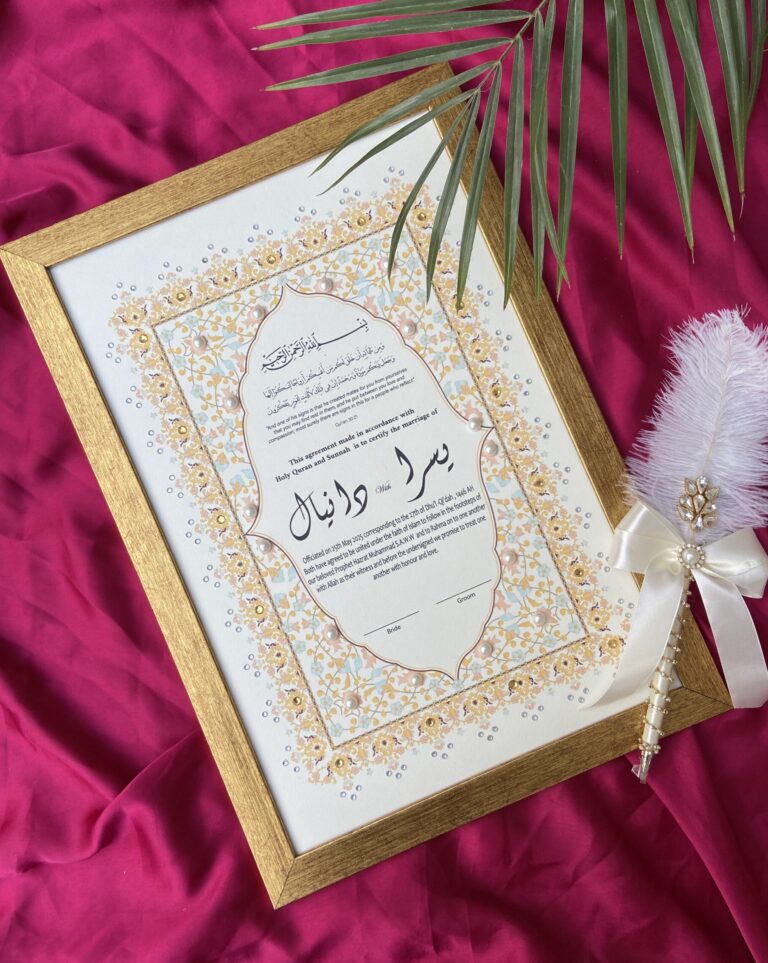 بسم الله الرحمن الرحيم
ومن آياته أن خلق لكم من أنفسكم أزواجا لتسكنوا إليها
وجعل بينكم مودة ورحمة إن في ذلك لآيات لقوم يتفكرون
"And one of his signs is that he created mates for you from yourselves
that you may find rest in them, and he put between you love and
compassion; most surely there are signs in this for a people who reflect"
Qur'an 30:21
This agreement made in accordance with
Holy Quran and Sunnah is to certify the marriage of
يسرا With دانيال
Officiated on 25th May 2025 corresponding to the 27th of Dhu'l-Qi'dah, 1446 AH
Both have agreed to be united under the faith of Islam to follow in the footsteps of
our beloved Prophet Hazrat Muhammad S.A.W.W and to Rahma on to one another
with Allah as their witness and before the undersigned we promise to treat one
another with honour and love.
Bride
Groom